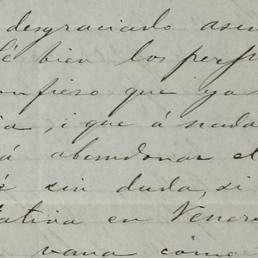 desgraciado ase
é bien los perju
onfieso que ya
a, i que á nada
á abandonar el
é sin duda, si
atina en Venez
vana como